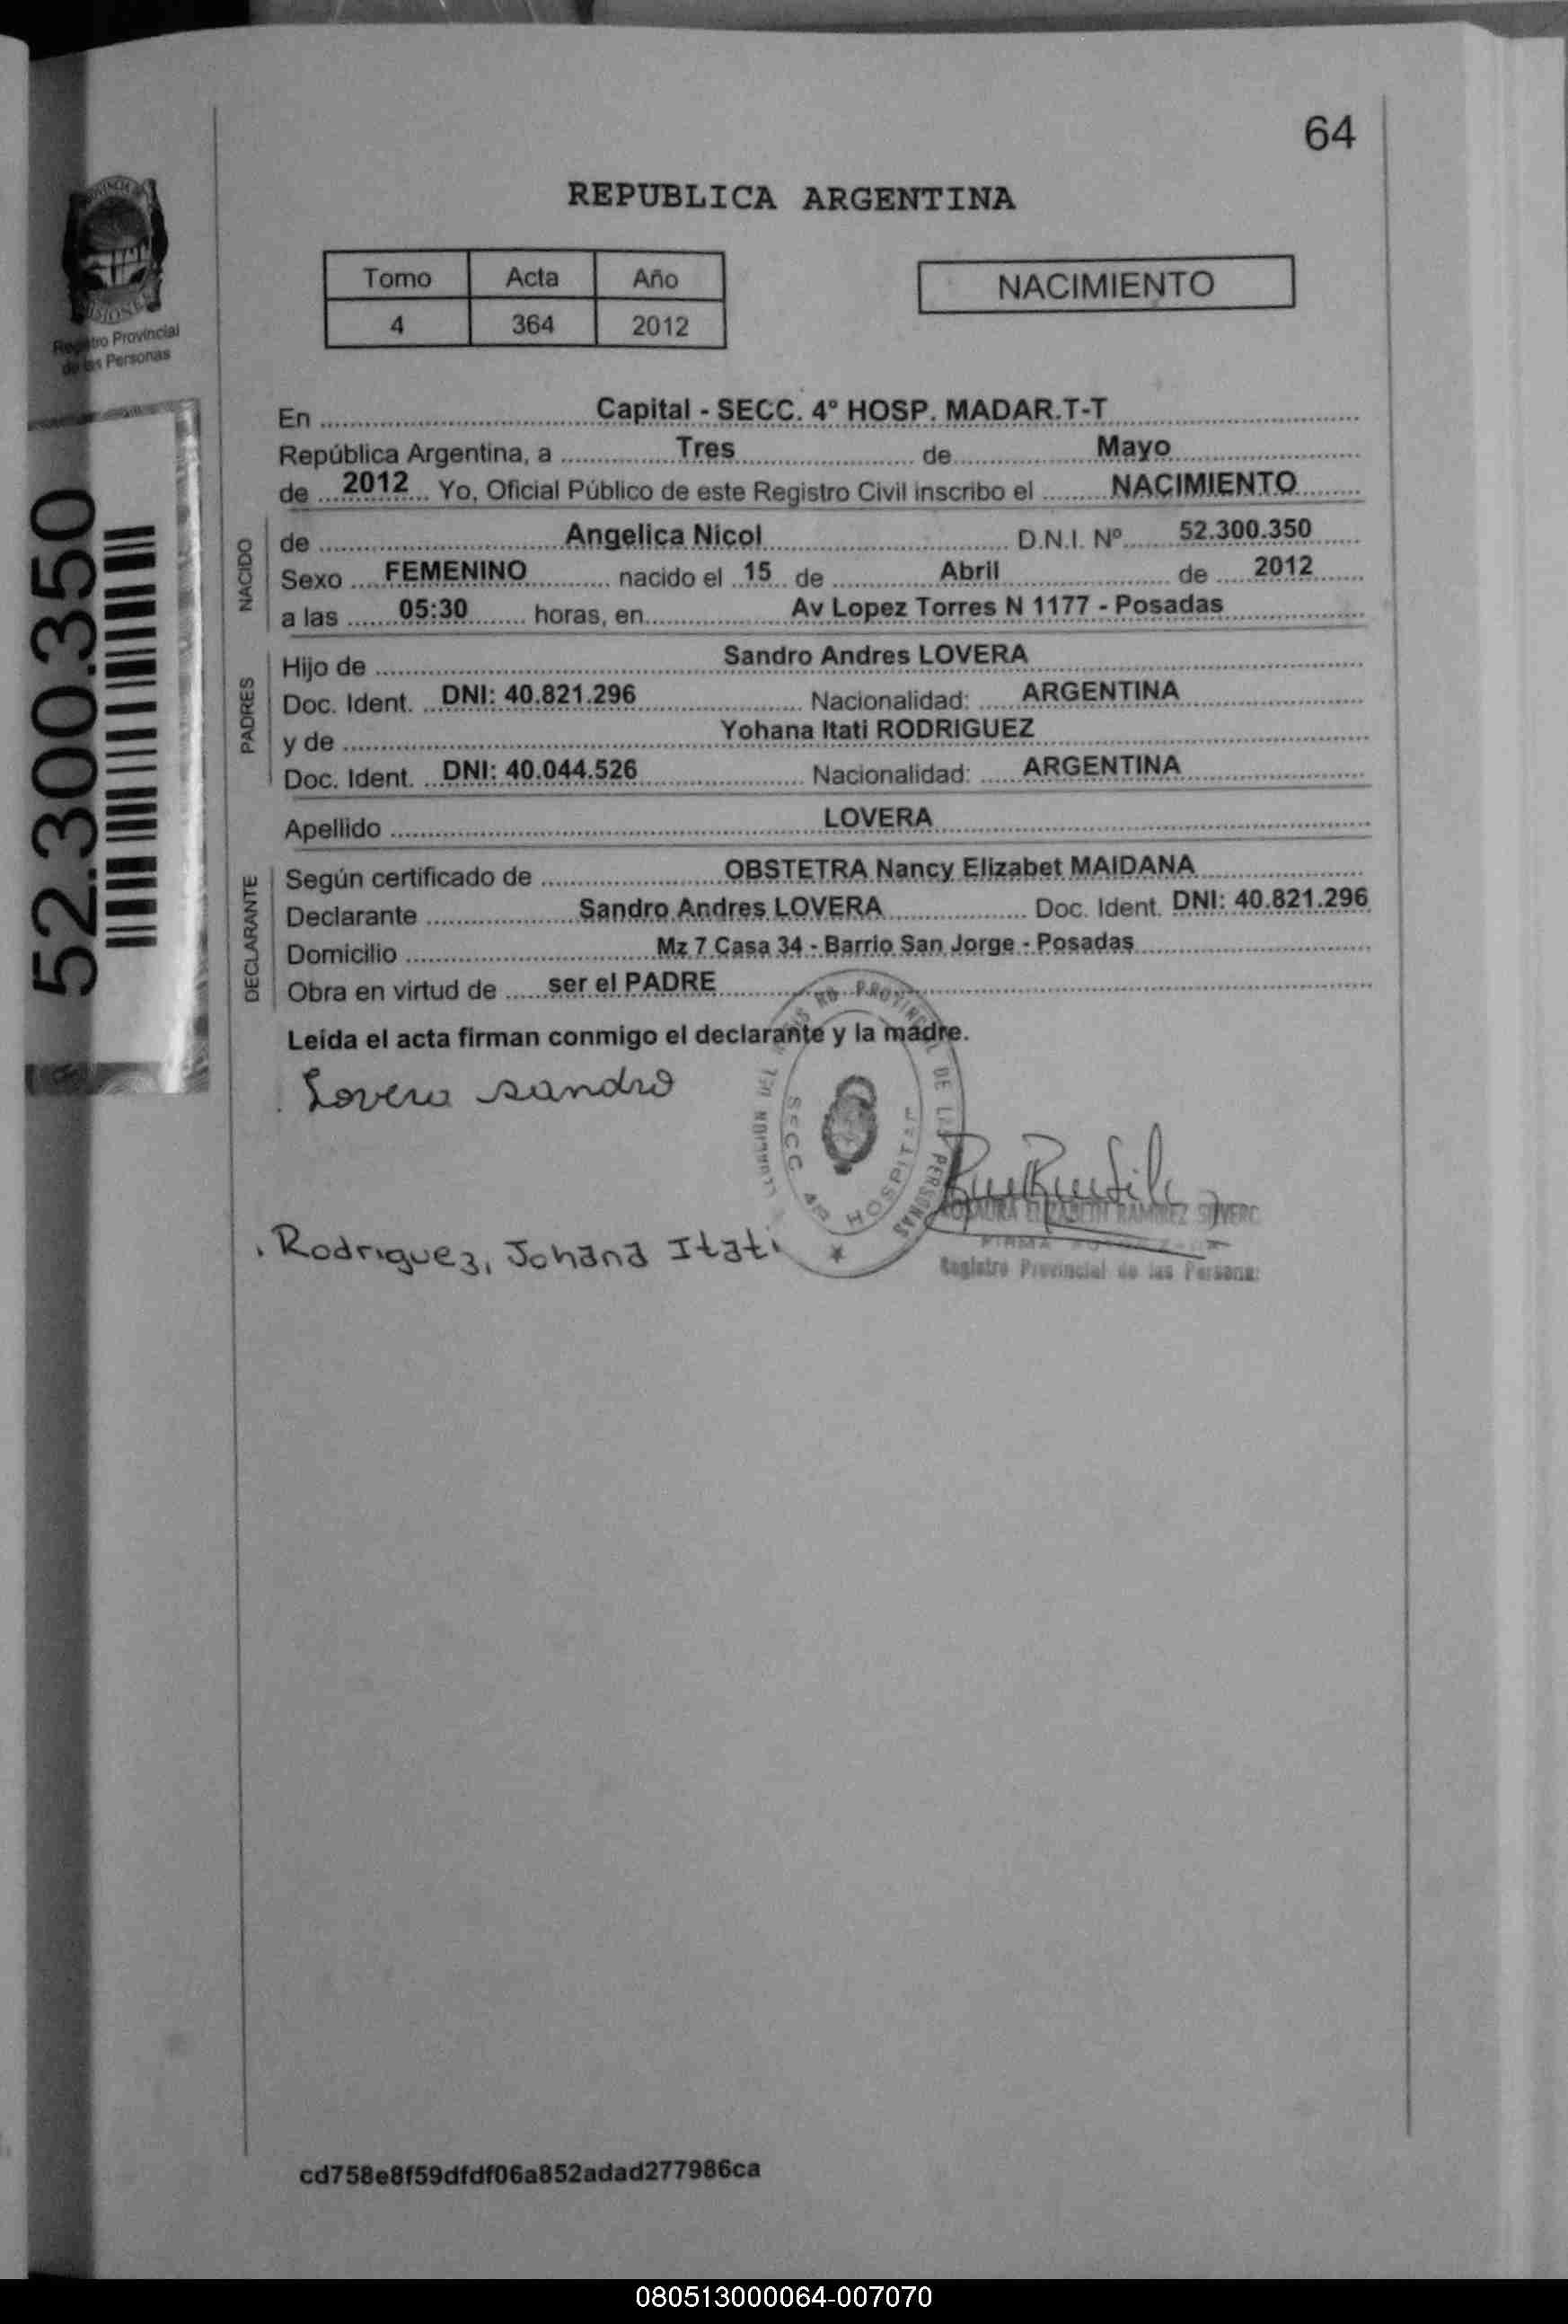 64
REPUBLICA ARGENTINA
Tomo Acta Año
4 364 2012
NACIMIENTO
Registro Provincial
de las Personas
52.300.350
En Capital - SECC. 4º HOSP. MADAR.T-T
República Argentina, a Tres de Mayo
de 2012 Yo, Oficial Público de este Registro Civil inscribo el NACIMIENTO
NACIDO
de Angelica Nicol D.N.I. Nº 52.300.350
Sexo FEMENINO nacido el 15 de Abril de 2012
a las 05:30 horas, en Av Lopez Torres N 1177 - Posadas
PADRES
Hijo de Sandro Andres LOVERA
Doc. Ident. DNI: 40.821.296 Nacionalidad: ARGENTINA
y de Yohana Itati RODRIGUEZ
Doc. Ident. DNI: 40.044.526 Nacionalidad: ARGENTINA
Apellido LOVERA
DECLARANTE
Según certificado de OBSTETRA Nancy Elizabet MAIDANA
Declarante Sandro Andres LOVERA Doc. Ident. DNI: 40.821.296
Domicilio Mz 7 Casa 34 - Barrio San Jorge - Posadas
Obra en virtud de ser el PADRE
Leída el acta firman conmigo el declarante y la madre.
Lovera Sandro
PROVINCIAL DE LAS PERSONAS
SECC 4ª HOSPITAL
Rodriguez, Johana Itati
RAMIREZ
FIRMA
Registro Provincial de las Personas
cd758e8f59dfdf06a852adad277986ca
080513000064-007070